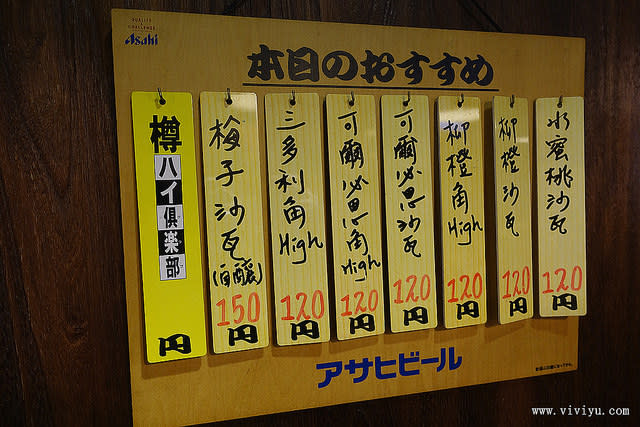 QUALITY
&
CHALLENGE
Asahi
本日のおすすめ
樽ハイ倶楽部
円
梅子沙瓦(自釀)
150
円
三多利角High
120
円
可爾必思角High
120
円
可爾必思沙瓦
120
円
柳橙角High
120
円
柳橙沙瓦
120
円
水蜜桃沙瓦
120
円
アサヒビール
www.viviyu.com